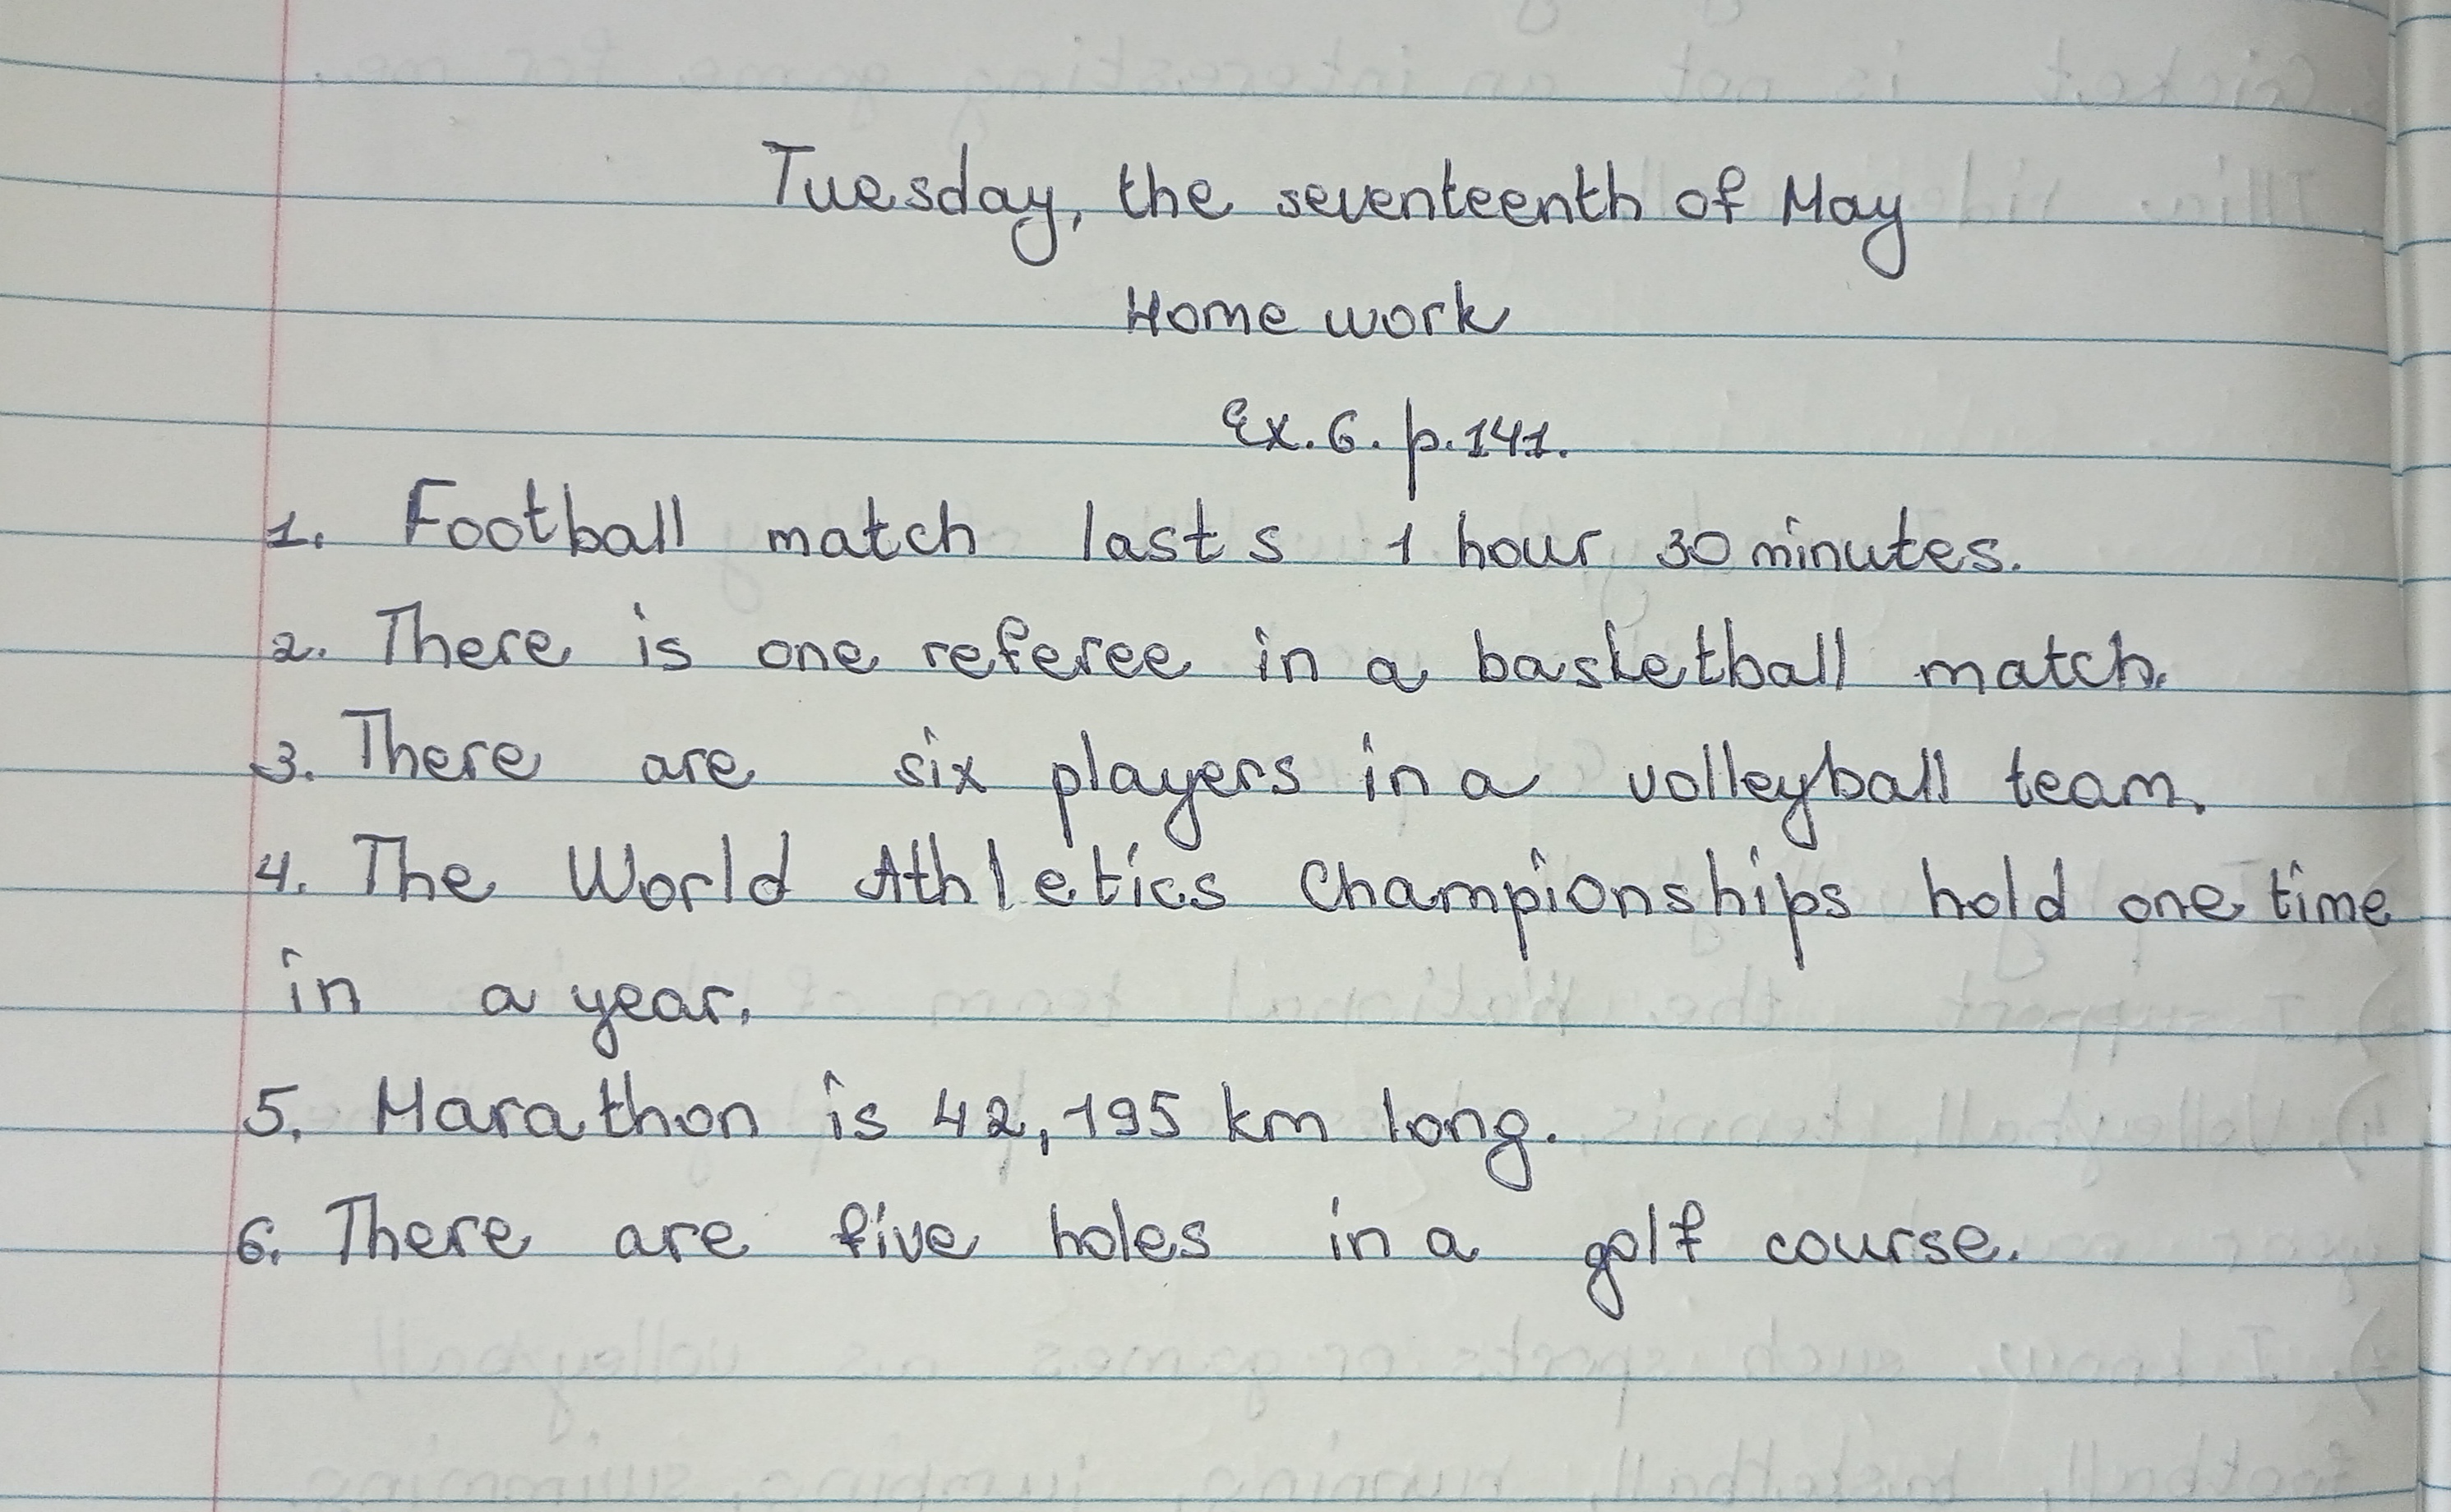 Tuesday, the seventeenth of May
Home work
Ex. 6. p. 141.
1. Football match lasts 1 hour 30 minutes.
2. There is one referee in a basketball match.
3. There are six players in a volleyball team.
4. The World Athletics Championships hold one time
in a year.
5. Marathon is 42,195 km long.
6. There are five holes in a golf course.